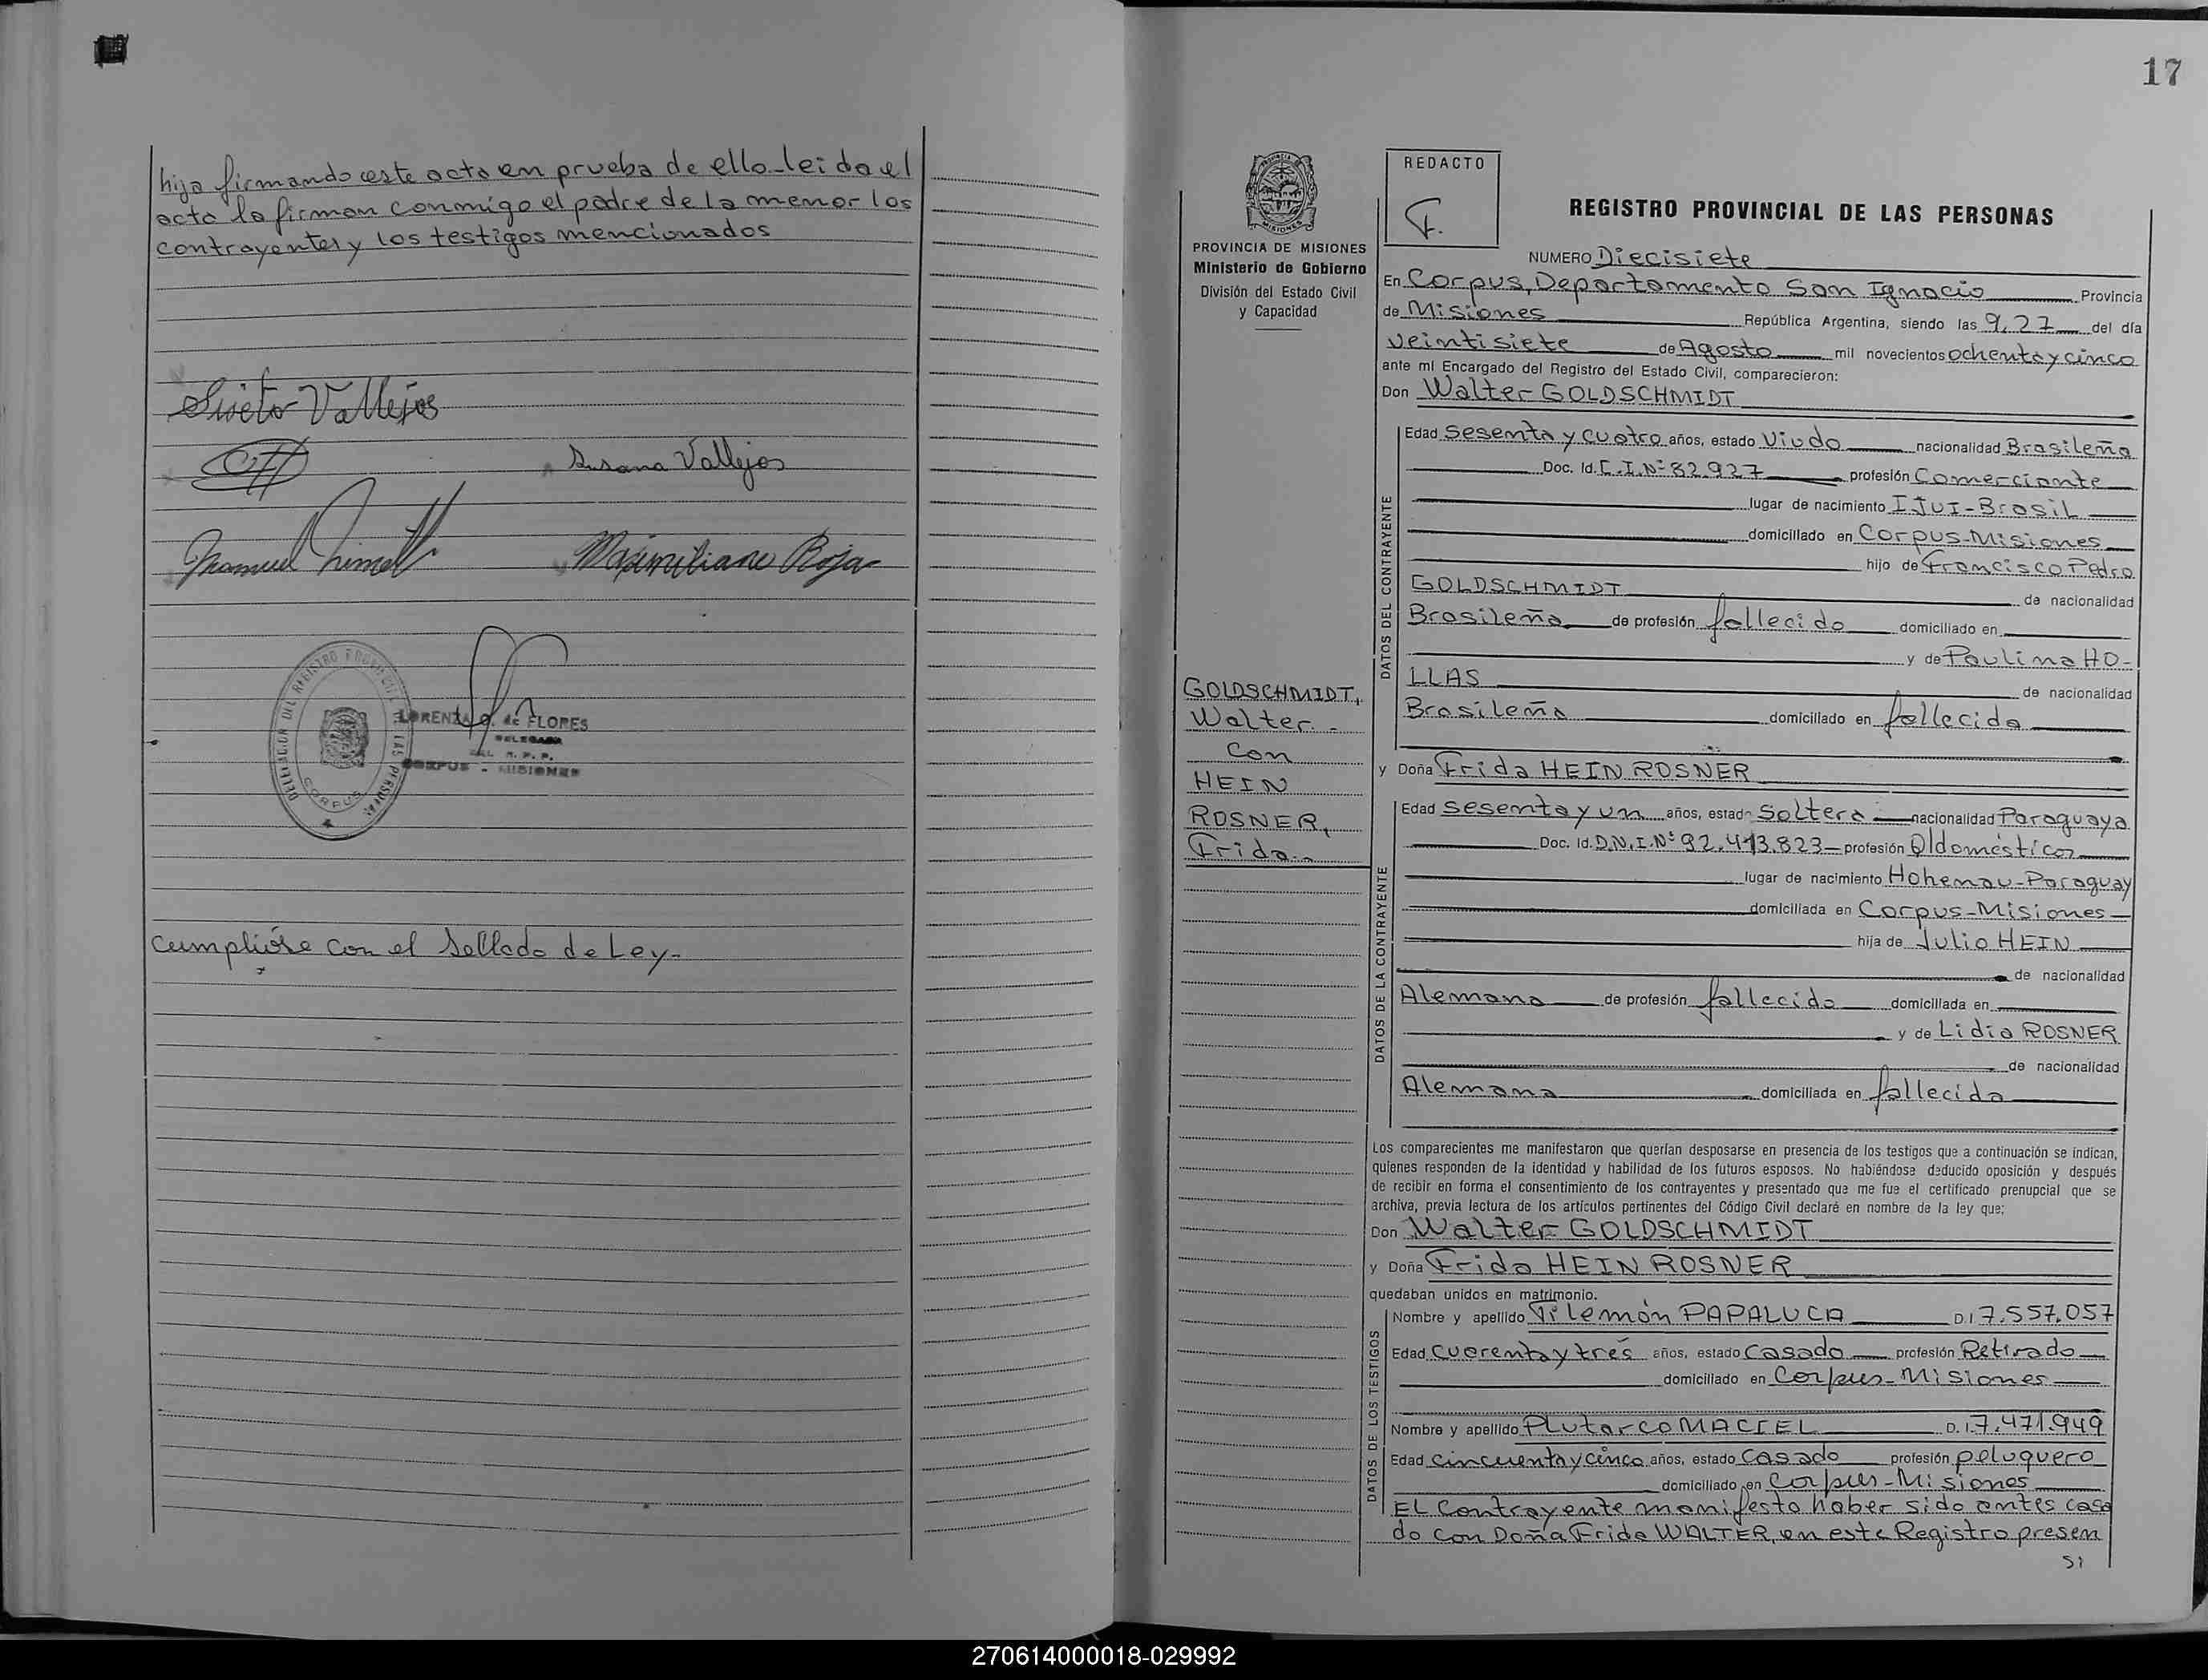 hija firmando este acta en prueba de ello_leida el
acta la firman conmigo el padre de la menor los
contrayentes y los testigos mencionados
Vallejos
Susana Vallejos
Manuel
Maximiliano Roja
DELEGACION DEL REGISTRO PROVINCIAL DE LAS PERSONAS
CORPUS
LORENZA G. de FLORES
DELEGADA
DEL R. P. P.
CORPUS - MISIONES
Cumplióse con el Sellado de Ley-
17
PROVINCIA DE MISIONES
Ministerio de Gobierno
División del Estado Civil
y Capacidad
GOLDSCHMIDT,
Walter.-
con
HEIN
ROSNER,
Frida.-
REDACTO
F.
REGISTRO PROVINCIAL DE LAS PERSONAS
NUMERO Diecisiete
En Corpus, Departamento San Ignacio Provincia
de Misiones República Argentina, siendo las 9,27 del día
veintisiete de Agosto mil novecientos ochenta y cinco
ante mi Encargado del Registro del Estado Civil, comparecieron:
Don Walter GOLDSCHMIDT
DATOS DEL CONTRAYENTE
Edad sesenta y cuatro años, estado Viudo nacionalidad Brasileña
Doc. Id. C.I.Nº 82.927 profesión Comerciante
lugar de nacimiento IJUI-Brasil
domiciliado en Corpus-Misiones
hijo de Francisco Pedro
GOLDSCHMIDT de nacionalidad
Brasileña de profesión fallecido domiciliado en
y de Paulina HO-
LLAS de nacionalidad
Brasileña domiciliado en fallecida
y Doña Frida HEIN ROSNER
DATOS DE LA CONTRAYENTE
Edad sesenta y un años, estado Soltera nacionalidad Paraguaya
Doc. Id. D.N.I.Nº 92.413.823- profesión Q/domésticos
lugar de nacimiento Hohenau-Paraguay
domiciliada en Corpus-Misiones-
hija de Julio HEIN
de nacionalidad
Alemana de profesión fallecido domiciliada en
y de Lidia ROSNER
de nacionalidad
Alemana domiciliada en fallecida
Los comparecientes me manifestaron que querían desposarse en presencia de los testigos que a continuación se indican,
quienes responden de la identidad y habilidad de los futuros esposos. No habiéndose deducido oposición y después
de recibir en forma el consentimiento de los contrayentes y presentado que me fue el certificado prenupcial que se
archiva, previa lectura de los artículos pertinentes del Código Civil declaré en nombre de la ley que:
Don Walter GOLDSCHMIDT
y Doña Frida HEIN ROSNER
quedaban unidos en matrimonio.
DATOS DE LOS TESTIGOS
Nombre y apellido Filemón PAPALUCA D.I 7.557.057
Edad cuarenta y tres años, estado Casado profesión Retirado
domiciliado en Corpus-Misiones
Nombre y apellido Plutarco MACIEL D.I. 7.471.949
Edad cincuenta y cinco años, estado Casado profesión peluquero
domiciliado en Corpus-Misiones
El Contrayente manifesta haber sido antes casa
do con Doña Frida WALTER, en este Registro presen
270614000018-029992